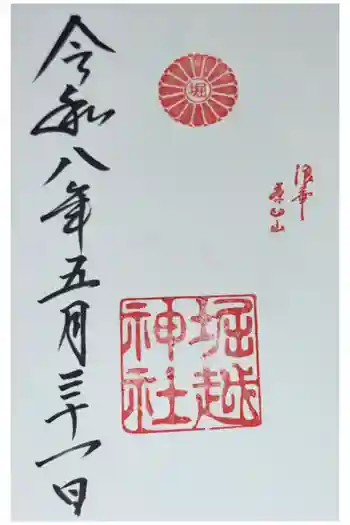 堀
浪華
茶臼山
堀越
神社
令和八年五月三十一日